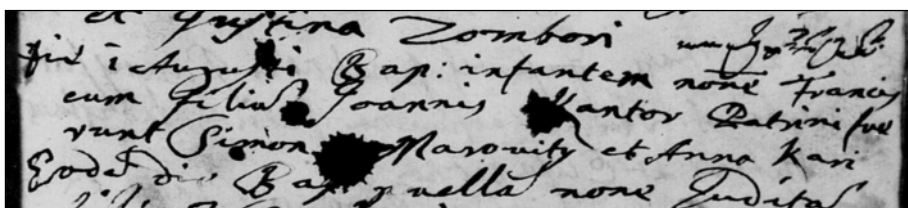 et Justina Zombori
die i Augusti Bap: infantem noñe Francis
cum filiū Joannis Kantor Patrini fue
runt Simon Marovity et Anna Kari
Eodē die Bap puellā none Juditā